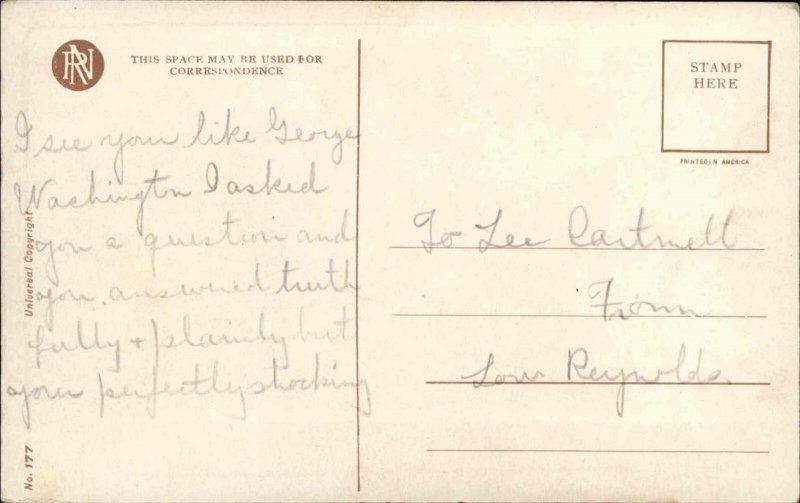 THIS SPACE MAY BE USED FOR
CORRESPONDENCE
I see your like George
Washington I asked
you a question and
you answered truth
fully + plainly but
your perfectly shocking
Universal Copyright
No. 177
STAMP
HERE
PRINTED IN AMERICA
To Lee Cartmell
From
Reynolds.